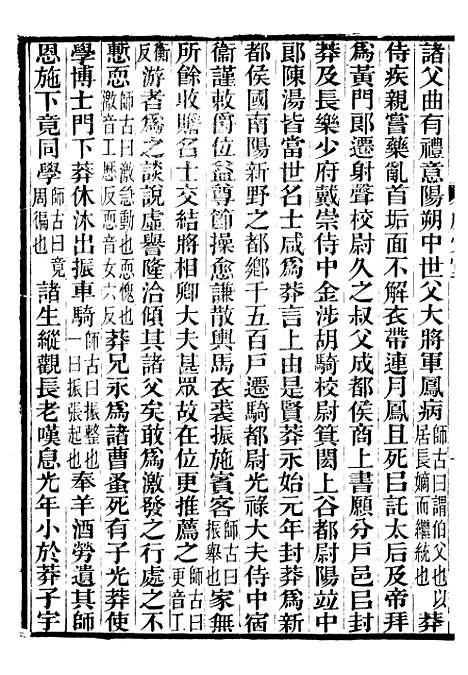 諸父曲有禮意陽朔中世父大將軍鳳病師古曰謂伯父也以居長嫡而繼統也莽
侍疾親嘗藥亂首垢面不解衣帶連月鳳且死㠯託太后及帝拜
爲黃門郎遷射聲校尉久之叔父成都侯商上書願分戶邑㠯封
莽及長樂少府戴崇侍中金涉胡騎校尉箕閎上谷都尉陽竝中
郎陳湯皆當世名士咸爲莽言上由是賢莽永始元年封莽爲新
都侯國南陽新野之都鄉千五百戶遷騎都尉光祿大夫侍中宿
衞謹敕爵位益尊節操愈謙散輿馬衣裘振施賓客師古曰振舉也家無
所餘收贍名士交結將相卿大夫甚眾故在位更推薦之師古曰更音工衡反
游者爲之談說虛譽隆洽傾其諸父矣敢爲激發之行處之不
慙恧師古曰激急動也恧愧也激音工歷反恧音女六反莽兄永爲諸曹蚤死有子光莽使
學博士門下莽休沐出振車騎師古曰振整也一曰振張起也奉羊酒勞遺其師
恩施下竟同學師古曰竟周徧也諸生縱觀長老嘆息光年小於莽子宇